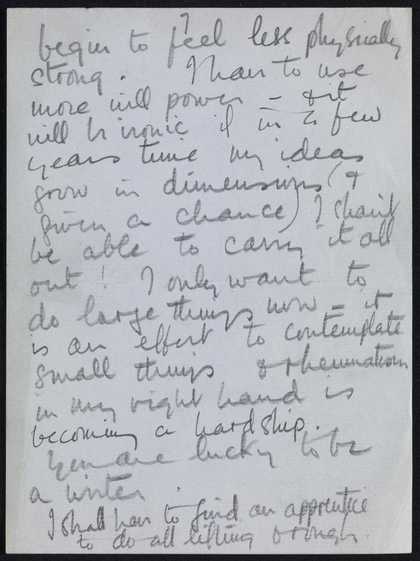 begin to feel less physically
strong. I have to use
more will power – & it
will be ironic if in a few
years time my ideas
grow in dimensions (&
given a chance) I shan't
be able to carry it all
out! I only want to
do large things now – it
is an effort to contemplate
small things & rheumatism
in my right hand is
becoming a hardship.
You are lucky to be
a writer.
I shall have to find an apprentice
to do all lifting & rough.